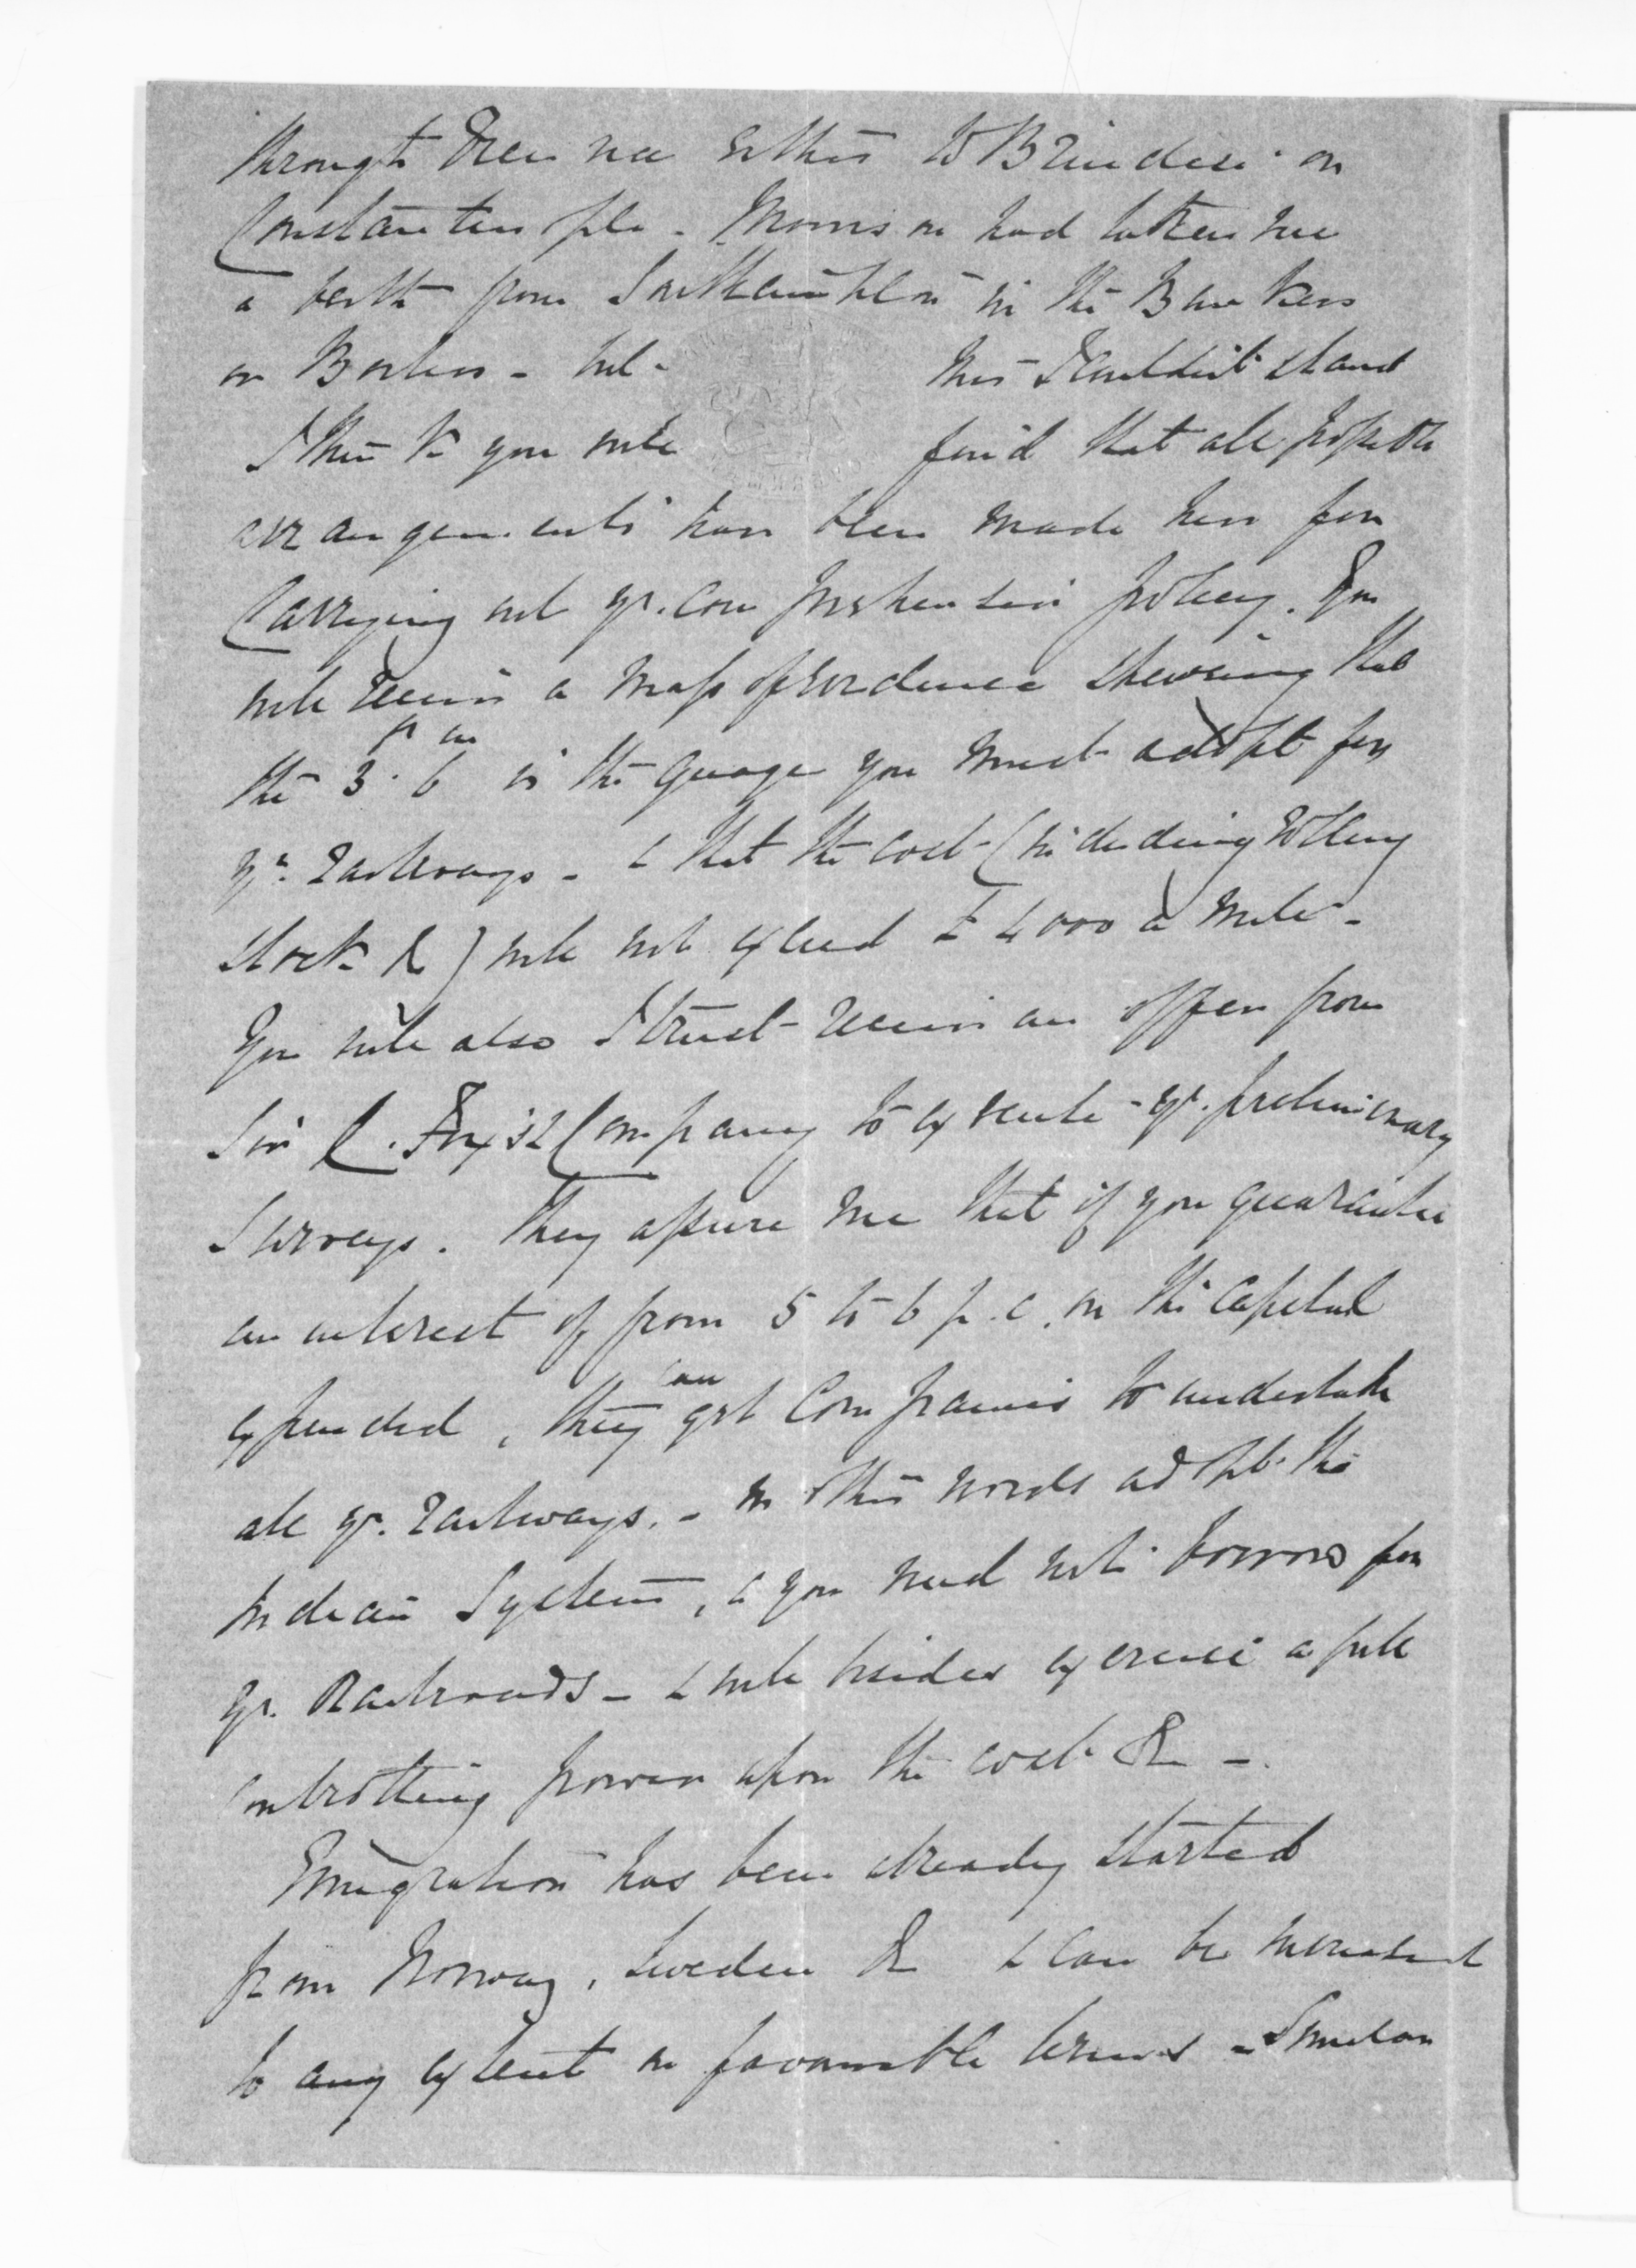 through Vienna either to Brindisi or
Constantinople - Morrison had taken me
a berth from Southampton in the Bunkers
or Boilers - but - this I couldn't stand
I think you will find that all possible
arrangements have been made here for
Carrying out yr. comprehensive policy. You
will receive a mass of evidence shewing that
the 3 ft 6 in is the guage you must adopt for
yr. Railways - & that the cost (including rolling
stock &c) will not exceed £4000 a mile -
You will also I trust receive an offer from
Sir C. Fox's Company to execute yr. preliminary
Surveys. They assure me that if you guarantee
an interest of from 5 to 6 p.c. on the capital
expended, they can get Companies to undertake
all yr. Railways. - in other words adopt the
Indian System, & you need not borrow for
yr. Railroads - & will besides exercise a full
controlling power upon the cost &c -
Emigration has been already started
from Norway, Sweden &c & can be increased
to any extent on favourable terms - Similar